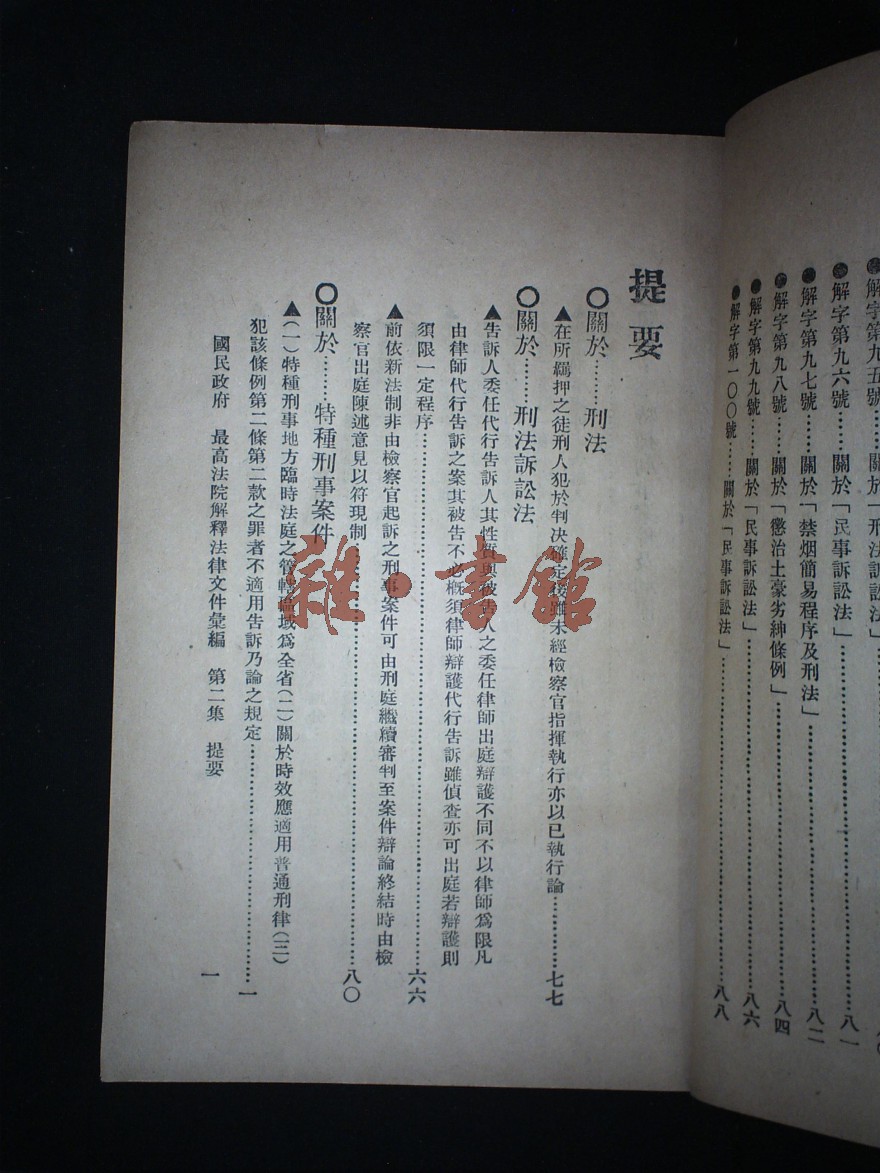 解字第九五號……關於「刑法訴訟法」
解字第九六號……關於「民事訴訟法」……八一
解字第九七號……關於「禁烟簡易程序及刑法」……八二
解字第九八號……關於「懲治土豪劣紳條例」……八四
解字第九九號……關於「民事訴訟法」……八六
解字第一〇〇號……關於「民事訴訟法」……八八
提要
〇關於……刑法
▲在所羈押之徒刑人犯於判決確定後雖未經檢察官指揮執行亦以已執行論……七七
〇關於……刑法訴訟法
▲告訴人委任代行告訴人其性質與被告人之委任律師出庭辯護不同不以律師爲限凡
由律師代行告訴之案其被告不必概須律師辯護代行告訴雖偵查亦可出庭若辯護則
須限一定程序……六六
▲前依新法制非由檢察官起訴之刑事案件可由刑庭繼續審判至案件辯論終結時由檢
察官出庭陳述意見以符現制……八〇
〇關於……特種刑事案件
▲(一)特種刑事地方臨時法庭之管轄區域爲全省(二)關於時效應適用普通刑律(三)
犯該條例第二條第二款之罪者不適用告訴乃論之規定……一
國民政府 最高法院解釋法律文件彙編 第二集 提要 一
雜·書館